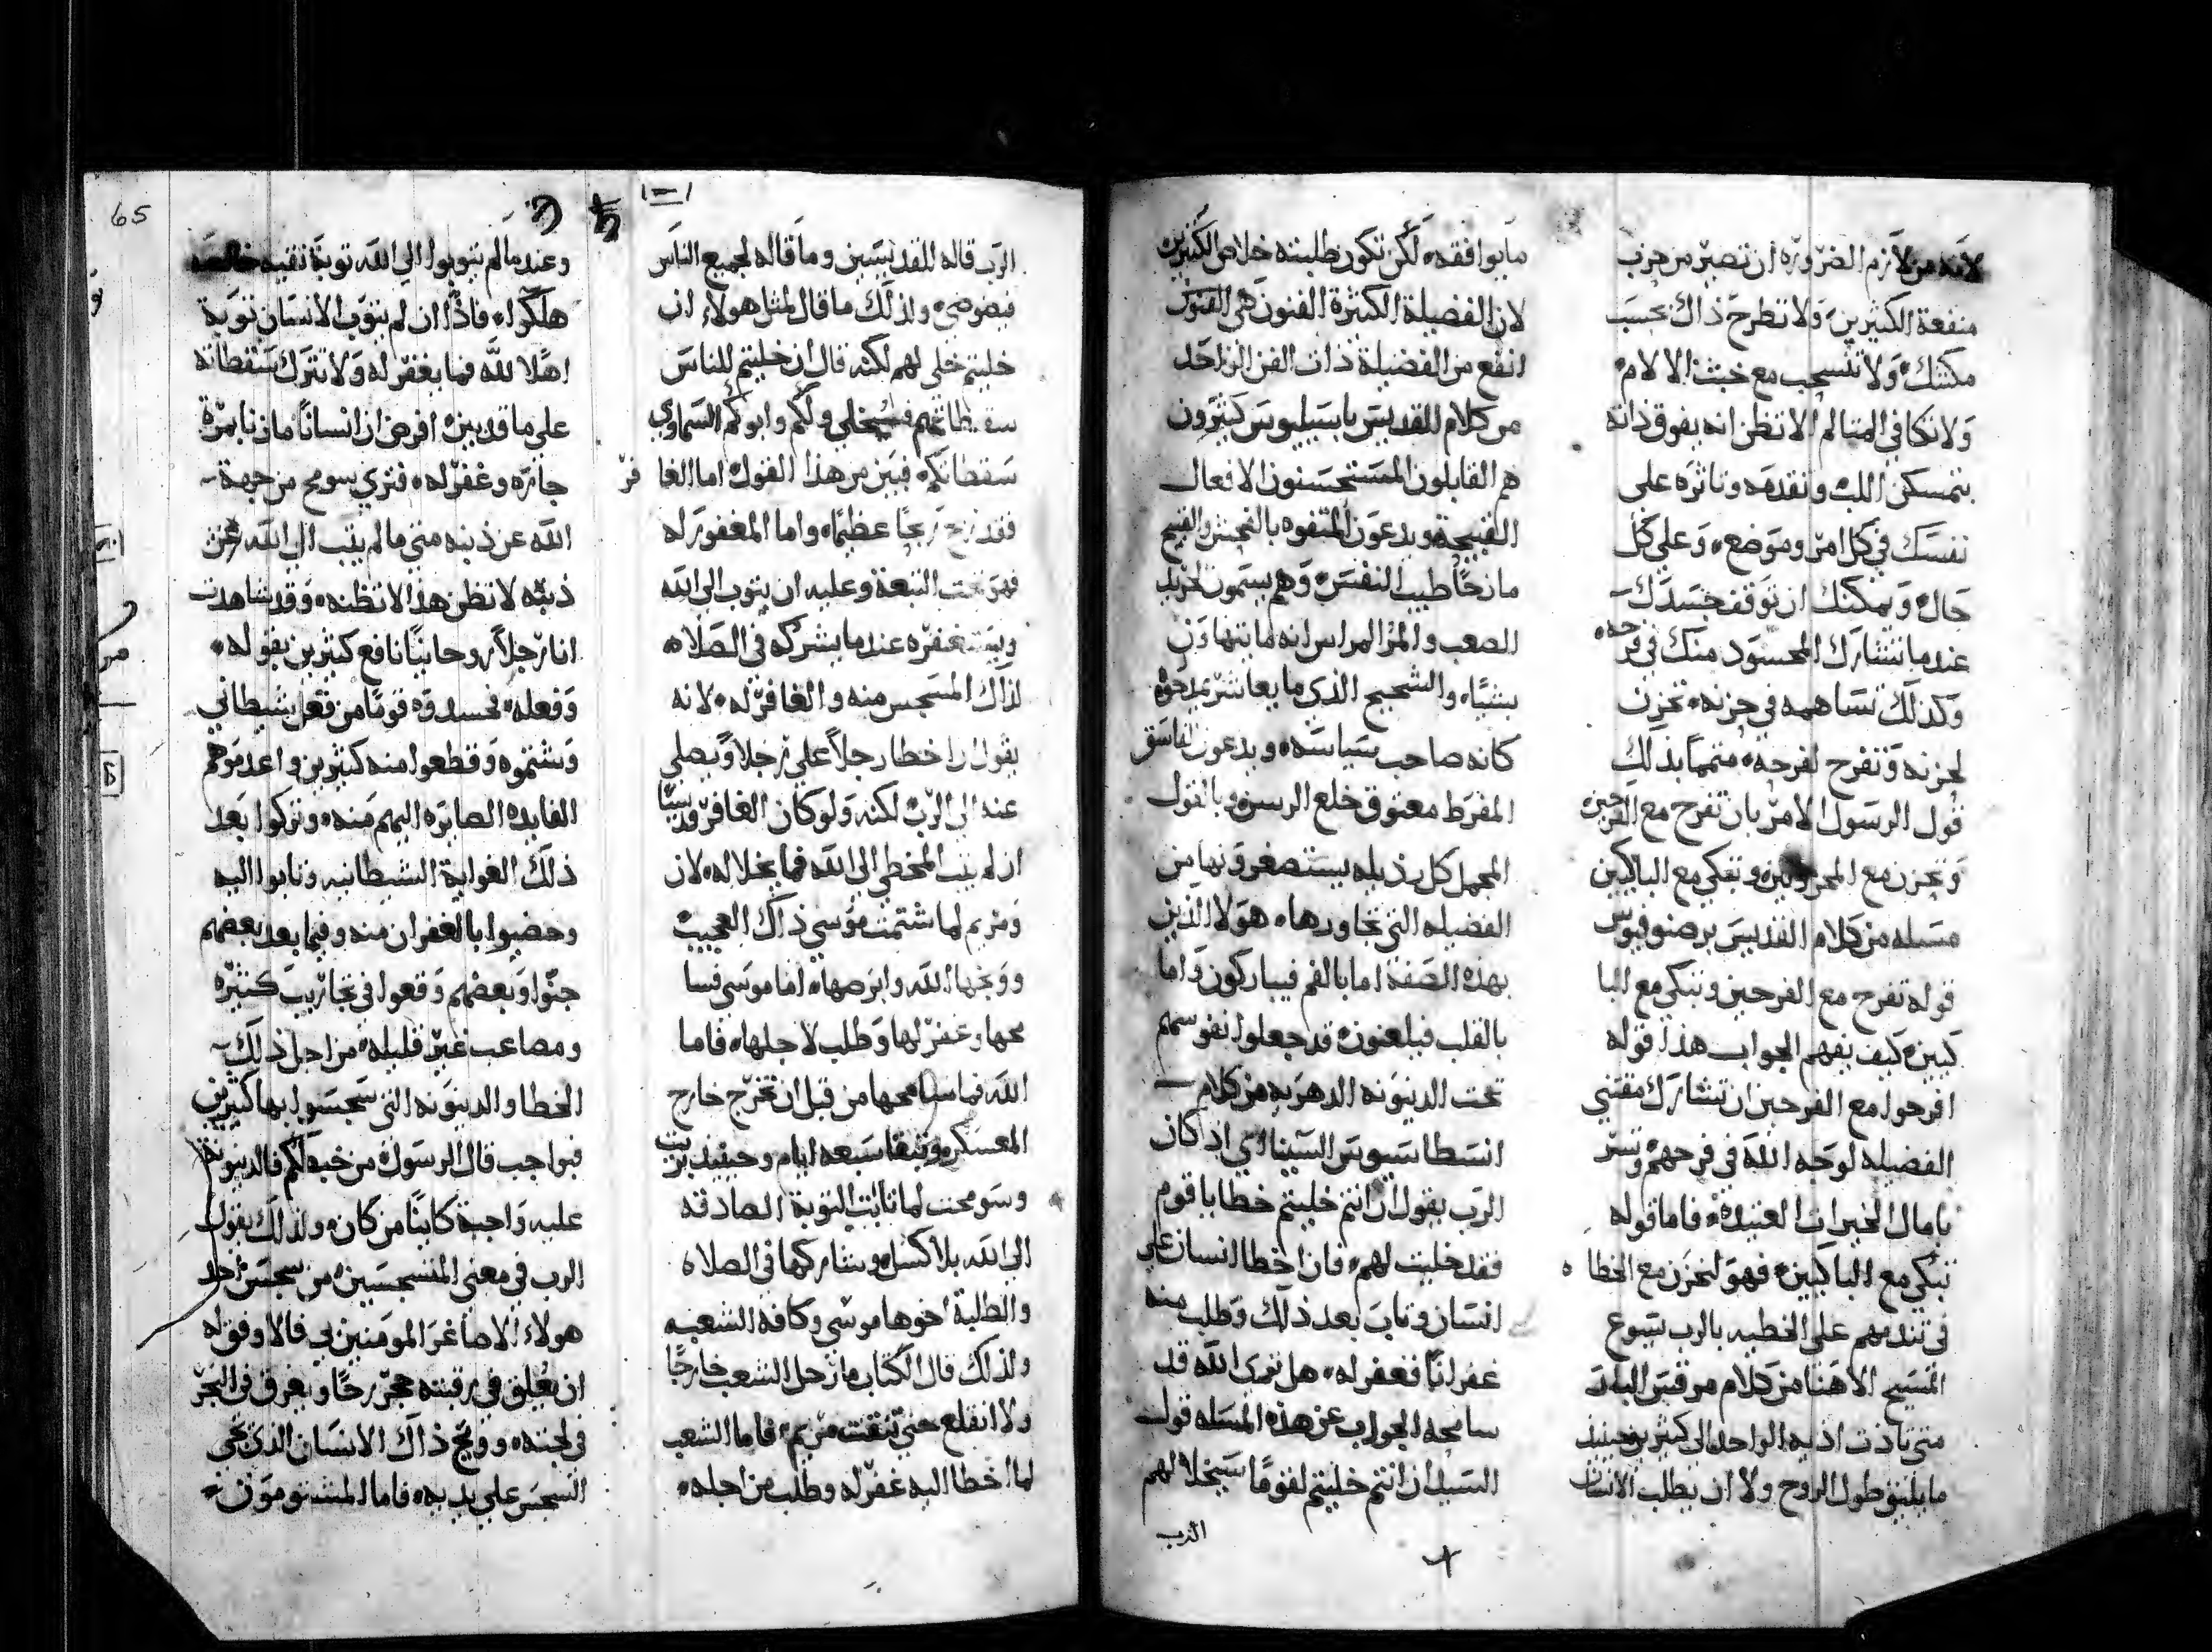 لانه من لازم الضروره ان تصير من حزب
منفعة الكثيرين ولا تطرح ذاك بحسب
مكنتك ولا تنسحب مع خبث الالام
ولا تكافي المتالم الا تظن انه يفوق ذاته
بتمسكن اللب وتقدمه وتاثره على
نفسك في كل امر وموضع وعلى كل
حال ويمكنك ان توقف حسدك
عندما تتشارك المحسود منك في فرحه
وكذلك تساهمه في حزنه تحزن
لحزنه وتفرح لفرحه متمما بذلك
قول الرسول الامر بان تفرح مع الفرحين
وتحزن مع المحزونين وتبكي مع الباكين
مسله من كلام القديس برصنوفيوس
قوله تفرح مع الفرحين وتبكي مع البا
كيين كيف يفهم الجواب هذا قوله
افرحوا مع الفرحين ان تتشارك مقتني
الفضيله لوجه الله في فرحهم وتسر
بامال الخيرات العتيده فاما قوله
تبكي مع الباكيين فهو لتحزن مع الخطا ه
في تندمهم على الخطيه بالرب يسوع
المسيح الاهنا من كلام مرقس البار
متى تاذت اذيه الواحد الى كثيرين حينيذ
ما يليق طول الروح ولا ان يطلب الانسان
ما يوافقه لكن تكون طلبته خلاص الكثيرين
لان الفضيلة الكثيرة الفنون هي الفنون
انفع من الفضيلة ذات الفن الواحد
من كلام للقديس باسيليوس كثيرون
هم القابلون المستحسنون الافعال
القبيحة ويدعون المتفوه بالفحش والقبيح
مازحا طيب النفس وهم يسمون
الصعب والمر المراس انه ما يتهاون
بشيا والشحيح الذى ما يعاشر يمدحوه
كانه صاحب سياسه ويدعون الفاسق
المفرط معتوق خلع الرسن وبالقول
المجمل كل رذيله يستصغرونها من
الفضيله التي تجاورها هولا الذين
بهذه الصفة اما بالفم فيباركون واما
بالقلب فيلعنون قد جعلوا نفوسهم
تحت الدينونه الدهريه من كلام
انسطاسيوس السيناي اذا كان
الرب يقول ان انتم خليتم خطا يا قوم
فقد خليت لهم فان اخطا انسان على
انسان وتاب بعد ذلك وطلب منه
غفرانا فغفر له هل نرى الله قد
سامحه الجواب عن هذه المسله قول
السيد ان انتم خليتم لقوما سيخلا لهم
الرب
65
الرب قاله للقديسين وما قاله لجميع الناس
فبضوضى ولذلك ما قال لمثل هولاء ان
خليتم خلى لهم لكنه قال ان خليتم للناس
سقطاتهم فسيخلي ولكم وابوكم السماوي
سقطاتكم فبين من هذا القول اما الغا فر
فقد ربح ربحا عظيما واما المغفور له
فهو تحت التبعة وعليه ان يتوب الى الله
ويستغفره عندما يشركه في الصلاه
لذاك المسجس منه والغافر له لانه
يقول اذا خطا رجلا على رجلا ويصلي
عنه الى الرب لكنه ولو كان الغافر قديسا
ان لم يتب المخطي الى الله فما يخلا له لان
ومريم لما شتمت موسى ذاك العجيب
ووبخها الله وابرصها اما موسى فسا
محها وغفر لها وطلب لاجلها فاما
الله فما سامحها من قبل ان تخرج خارج
المعسكر وتبقا سبعه ايام وحينيذ
وسومحت لما تابت التوبة الصادقه
الى الله بلا كسل وشاركها في الصلاه
والطلبة اخوها موسى وكافة الشعب
ولذلك قال الكتاب ما رحل الشعب خارجا
ولا انقلع حتى تنقت مريم فاما الشعب
لما اخطا اليه غفر له وطلب من اجله
وعندما لم يتوبوا الى الله توبة نقيه خالصه
هلكوا فاذا ان لم يتوب الانسان توبة
اهلا لله فما يغفر له ولا تترك سقطاته
على ما قد بين افرض ان انسانا ما زنا بمرة
جاره وغفر له فترى سومح من جهة
الله عن ذنبه متى ما لم يتب الى الله عن
ذنبه لا تظن هذا لا تظنه وقد شاهدت
انا رجلا روحانيا نافع كثيرين بقوله
وفعله فحسدوه قوما من فعل شيطاني
وشتموه وقطعوا منه كثيرين واعدموهم
الفايده الصايره اليهم منه وتركوا بعد
ذلك الغواية الشيطانيه وتابوا اليه
وحضيوا بالغفران منه وفيما بعد بعضهم
جنوا وبعضهم وقعوا في تجاريب كثيره
ومصاعب غير قليله من اجل ذلك
الخطا والدينونه التي سجسوا بها كثيرين
فبواجب قال الرسول من خبلكم فالدينونة
عليه واجبة كاينا من كان ولذلك يقول
الرب في معنى المتسجسين من سجس احد
هولاء الاصاغر المومنين بي فالاوفق له
ان يعلق في رقبته حجر رحا ويغرق في البحر
في لجته وويح ذاك الانسان الذى تجي
السجس على يديه فاما المشتومون